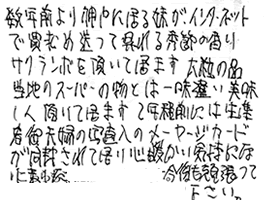 数年前より神戸に居る妹がインターネット
で買求め送って呉れる季節の香り
サクランボを頂いて居ます 大粒の品
当地のスーパーの物とは一味違い美味
しく頂いて居ます て年種前には生産
者御夫婦の写真入のメーセージカード
が同封されて居り心暖かい気持にな
りました 今後も頑張って
下さい。